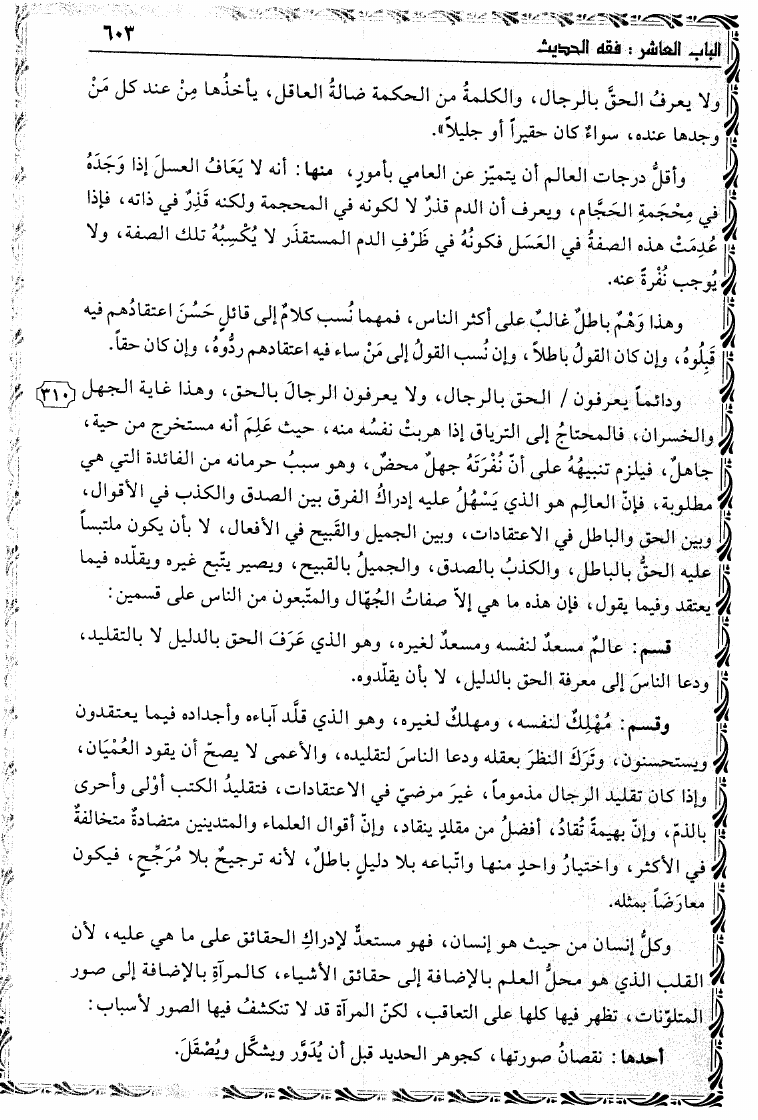 ٦٠٣
الباب العاشر : فقه الحديث
ولا يعرفُ الحقَّ بالرجال، والكلمةُ من الحكمة ضالةُ العاقل، يأخذُها مِنْ عند كل مَنْ
وجدها عنده، سواءٌ كان حقيراً أو جليلاً».
وأقلُّ درجات العالم أن يتميّز عن العامي بأمورٍ، منها: أنه لا يَعَافُ العسلَ إذا وَجَدَهُ
في مِحْجَمةِ الحَجَّام، ويعرف أن الدم قذرٌ لا لكونه في المحجمة ولكنه قَذِرٌ في ذاته، فإذا
عُدِمَتْ هذه الصفةُ في العَسَل فكونُهُ في ظَرْفِ الدم المستقذَر لا يُكْسِبُهُ تلك الصفة، ولا
يُوجب نُفْرةً عنه.
وهذا وَهْمٌ باطلٌ غالبٌ على أكثر الناس، فمهما نُسب كلامٌ إلى قائلٍ حَسُنَ اعتقادُهم فيه
قَبِلُوهُ، وإن كان القولُ باطلاً، وإن نُسب القولُ إلى مَنْ ساء فيه اعتقادهم ردُّوهُ، وإن كان حقاً.
ودائماً يعرفون / الحق بالرجال، ولا يعرفون الرجالَ بالحق، وهذا غاية الجهل ٣١٠
والخسران، فالمحتاجُ إلى الترياق إذا هربتْ نفسُه منه، حيث عَلِمَ أنه مستخرج من حية،
جاهلٌ، فيلزم تنبيهُهُ على أنّ نُفْرَتَهُ جهلٌ محضٌ، وهو سببُ حرمانه من الفائدة التي هي
مطلوبة، فإنّ العالِم هو الذي يَسْهُلُ عليه إدراكُ الفرق بين الصدق والكذب في الأقوال،
وبين الحق والباطل في الاعتقادات، وبين الجميل والقَبيح في الأفعال، لا بأن يكون ملتبساً
عليه الحقُّ بالباطل، والكذبُ بالصدق، والجميلُ بالقبيح، ويصير يتّبع غيره ويقلّده فيما
يعتقد وفيما يقول، فإن هذه ما هي إلاّ صفاتُ الجُهّال والمتّبعون من الناس على قسمين:
قسم: عالمٌ مسعدٌ لنفسه ومسعدٌ لغيره، وهو الذي عَرَفَ الحق بالدليل لا بالتقليد،
ودعا الناسَ إلى معرفة الحق بالدليل، لا بأن يقلّدوه.
وقسم: مُهْلِكٌ لنفسه، ومهلكٌ لغيره، وهو الذي قلَّد آباءه وأجداده فيما يعتقدون
ويستحسنون، وتَرَكَ النظرَ بعقله ودعا الناسَ لتقليده، والأعمى لا يصحّ أن يقود العُمْيَان،
وإذا كان تقليد الرجال مذموماً، غيرَ مرضيّ في الاعتقادات، فتقليدُ الكتب أوْلى وأحرى
بالذمّ، وإنّ بهيمةً تُقادُ، أفضلُ من مقلدٍ ينقاد، وإنّ أقوال العلماء والمتدينين متضادةٌ متخالفةٌ
في الأكثر، واختيارُ واحدٍ منها واتّباعه بلا دليلٍ باطلٌ، لأنه ترجيحٌ بلا مُرَجِّحٍ، فيكون
معارَضَاً بمثله.
وكلُّ إنسان من حيث هو إنسان، فهو مستعدٌّ لإدراكِ الحقائق على ما هي عليه، لأن
القلب الذي هو محلُّ العلم بالإضافة إلى حقائق الأشياء، كالمرآةِ بالإضافة إلى صور
المتلوّنات، تظهر فيها كلها على التعاقب، لكنّ المرآة قد لا تنكشفُ فيها الصور لأسباب:
أحدها: نقصانُ صورتها، كجوهر الحديد قبل أن يُدَوَّر ويشكَّل ويُصْقَلَ.